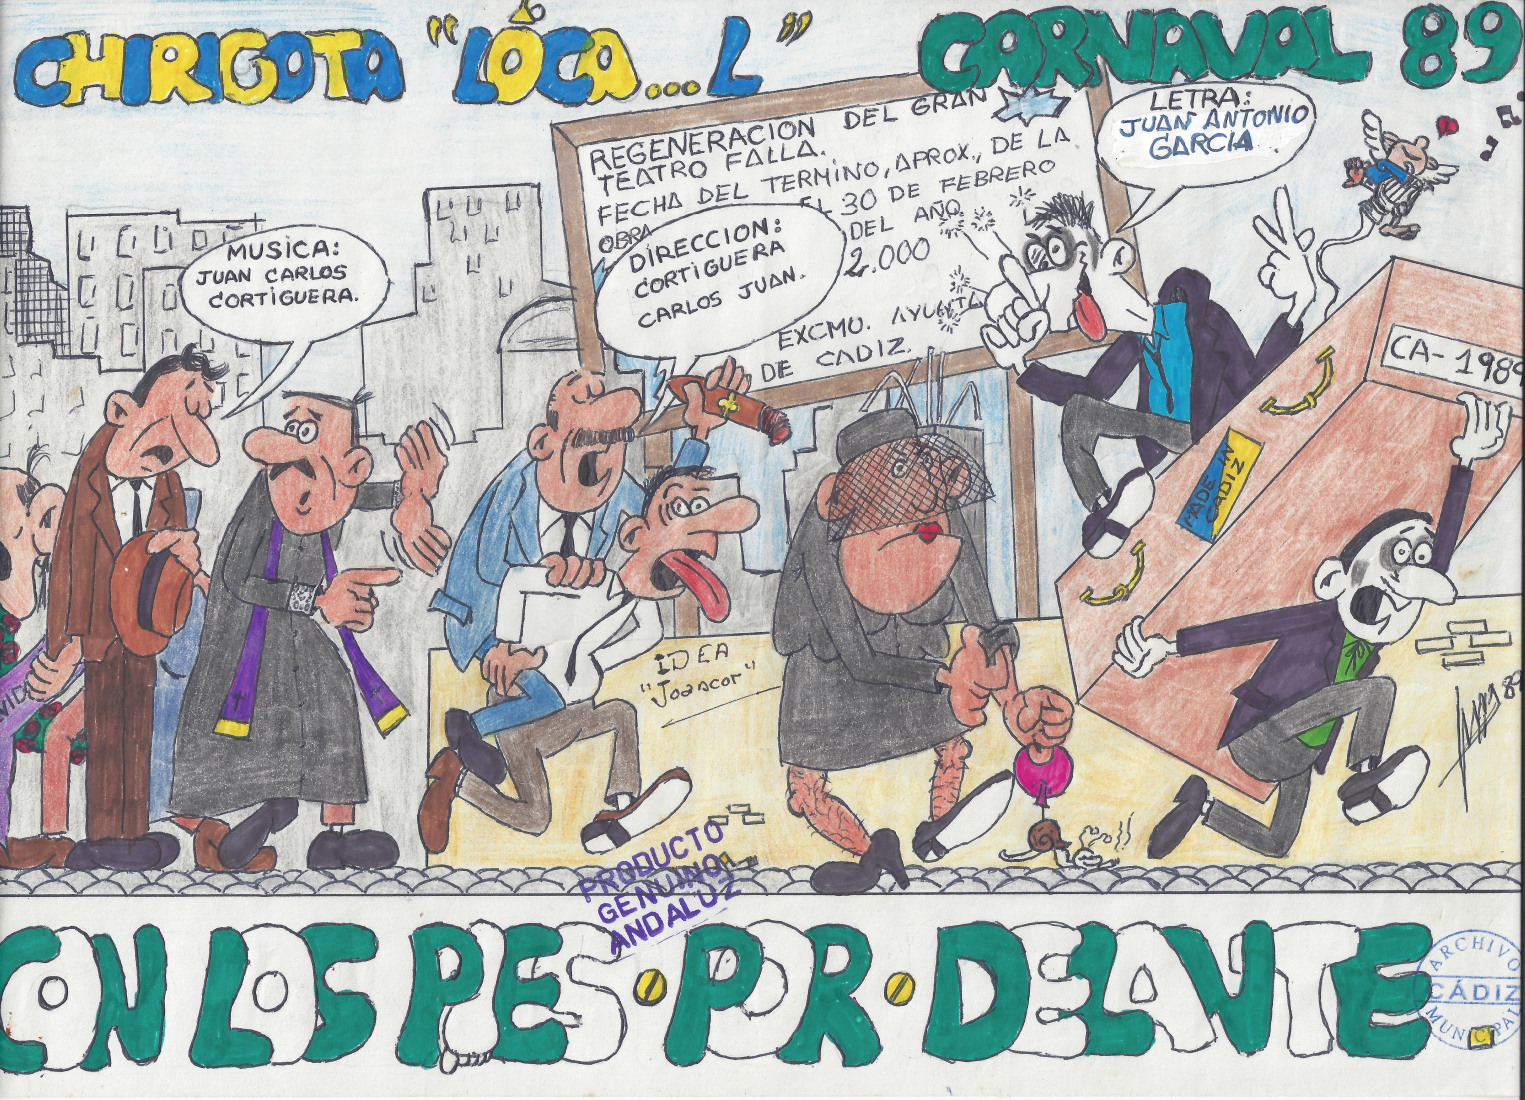 CHIRIGOTA "LOCA...L"
CARNAVAL 89
REGENERACION DEL GRAN
TEATRO FALLA.
FECHA DEL TERMINO, APROX., DE LA
OBRA EL 30 DE FEBRERO
DEL AÑO
2.000
EXCMO. AYUNTA
DE CADIZ.
LETRA:
JUAN ANTONIO
GARCIA
MUSICA:
JUAN CARLOS
CORTIGUERA.
DIRECCION:
CORTIGUERA
CARLOS JUAN.
CA-1989
MADE IN
CADIZ
IDEA
"Joancor"
89
PRODUCTO
GENUINO
ANDALUZ
CON LOS PIES·POR·DELANTE
ARCHIVO
CÁDIZ
MUNICIPAL